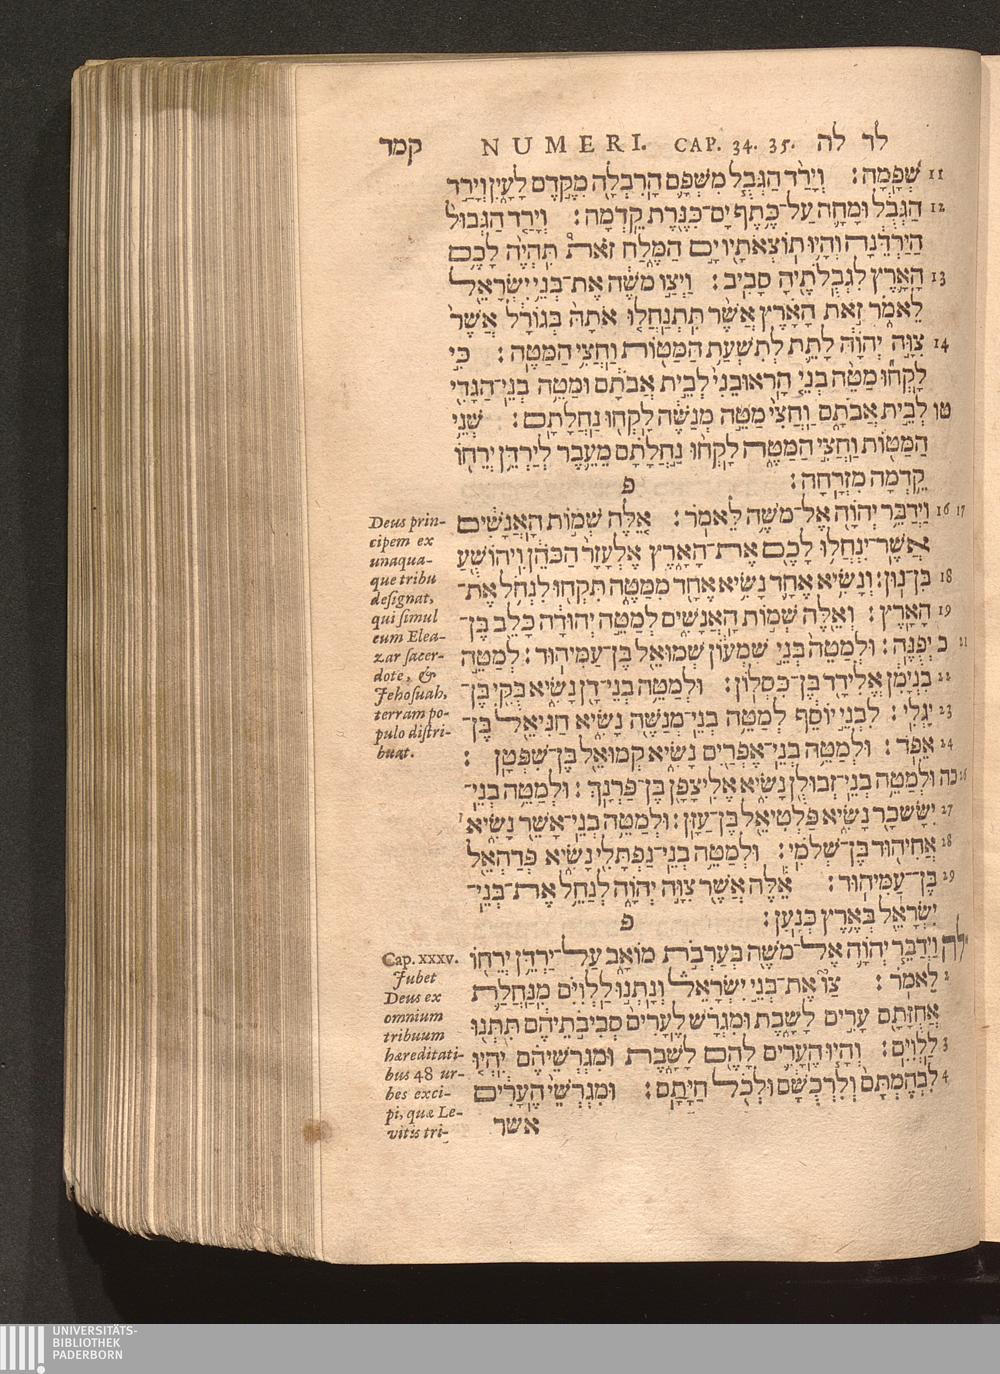 קמד NUMERI. CAP. 34. 35. לד לה
11 שְׁפָמָה׃ וְיָרַד הַגְּבֻל מִשְּׁפָם הָרִבְלָה מִקֶּדֶם לָעָיִן וְיָרַד
12 הַגְּבֻל וּמָחָה עַל־כֶּתֶף יָם־כִּנֶּרֶת קֵדְמָה׃ וְיָרַד הַגְּבוּל
הַיַּרְדֵּנָה וְהָיוּ תוֹצְאֹתָיו יָם הַמֶּלַח זֹאת תִּהְיֶה לָכֶם
13 הָאָרֶץ לִגְבֻלֹתֶיהָ סָבִיב׃ וַיְצַו מֹשֶׁה אֶת־בְּנֵי יִשְׂרָאֵל
לֵאמֹר זֹאת הָאָרֶץ אֲשֶׁר תִּתְנַחֲלוּ אֹתָהּ בְּגוֹרָל אֲשֶׁר
14 צִוָּה יְהוָֹה לָתֵת לְתִשְׁעַת הַמַּטּוֹת וַחֲצִי הַמַּטֶּה׃ כִּי
לָקְחוּ מַטֵּה בְנֵי הָראוּבֵנִי לְבֵית אֲבֹתָם וּמַטֵּה בְנֵי־הַגָּדִי
טו לְבֵית אֲבֹתָם וַחֲצִי מַטֵּה מְנַשֶּׁה לָקְחוּ נַחֲלָתָם׃ שְׁנֵי
הַמַּטּוֹת וַחֲצִי הַמַּטֶּה לָקְחוּ נַחֲלָתָם מֵעֵבֶר לְיַרְדֵּן יְרֵחוֹ
קֵדְמָה מִזְרָחָה׃ פ
16 17 וַיְדַבֵּר יְהוָֹה אֶל־מֹשֶׁה לֵּאמֹר׃ אֵלֶּה שְׁמוֹת הָאֲנָשִׁים
אֲשֶׁר־יִנְחֲלוּ לָכֶם אֶת־הָאָרֶץ אֶלְעָזָר הַכֹּהֵן וִיהוֹשֻׁעַ
18 בִּן־נוּן׃ וְנָשִׂיא אֶחָד נָשִׂיא אֶחָד מִמַּטֶּה תִּקְחוּ לִנְחֹל אֶת־
19 הָאָרֶץ׃ וְאֵלֶּה שְׁמוֹת הָאֲנָשִׁים לְמַטֵּה יְהוּדָה כָּלֵב בֶּן־
כ 21 יְפֻנֶּה׃ וּלְמַטֵּה בְּנֵי שִׁמְעוֹן שְׁמוּאֵל בֶּן־עַמִּיהוּד׃ לְמַטֵּה
22 בִנְיָמִן אֱלִידָד בֶּן־כִּסְלוֹן׃ וּלְמַטֵּה בְנֵי־דָן נָשִׂיא בֻּקִּי בֶּן־
23 יָגְלִי׃ לִבְנֵי יוֹסֵף לְמַטֵּה בְנֵי־מְנַשֶּׁה נָשִׂיא חַנִּיאֵל בֶּן־
24 אֵפֹד׃ וּלְמַטֵּה בְנֵי־אֶפְרַיִם נָשִׂיא קְמוּאֵל בֶּן־שִׁפְטָן׃
כה 26 וּלְמַטֵּה בְנֵי־זְבוּלֻן נָשִׂיא אֱלִיצָפָן בֶּן־פַּרְנָךְ׃ וּלְמַטֵּה בְנֵי־
27 יִשָּׂשכָר נָשִׂיא פַּלְטִיאֵל בֶּן־עַזָּן׃ וּלְמַטֵּה בְנֵי־אָשֵׁר נָשִׂיא
28 אֲחִיהוּד בֶּן־שְׁלֹמִי׃ וּלְמַטֵּה בְנֵי־נַפְתָּלִי נָשִׂיא פְּדַהְאֵל
29 בֶּן־עַמִּיהוּד׃ אֵלֶּה אֲשֶׁר צִוָּה יְהוָֹה לְנַחֵל אֶת־בְּנֵי־
יִשְׂרָאֵל בְּאֶרֶץ כְּנָעַן׃ פ
לה וַיְדַבֵּר יְהוָֹה אֶל־מֹשֶׁה בְּעַרְבֹת מוֹאָב עַל־יַרְדֵּן יְרֵחוֹ
2 לֵאמֹר׃ צַו אֶת־בְּנֵי יִשְׂרָאֵל וְנָתְנוּ לַלְוִיִּם מִנַּחֲלַת
אֲחֻזָּתָם עָרִים לָשָׁבֶת וּמִגְרָשׁ לֶעָרִים סְבִיבֹתֵיהֶם תִּתְּנוּ
3 לַלְוִיִּם׃ וְהָיוּ הֶעָרִים לָהֶם לָשָׁבֶת וּמִגְרְשֵׁיהֶם יִהְיוּ
4 לִבְהֶמְתָּם וְלִרְכֻשָׁם וּלְכֹל חַיָּתָם׃ וּמִגְרְשֵׁי הֶעָרִים
אשר
Deus prin-
cipem ex
unaqua-
que tribu
designat,
qui simul
cum Elea-
zar sacer-
dote, &
Jehosuah,
terram po-
pulo distri-
buat.
Cap. XXXV.
Jubet
Deus ex
omnium
tribuum
hæreditati-
bus 48 ur-
bes exci-
pi, quæ Le-
vitis tri-
UNIVERSITÄTS-
BIBLIOTHEK
PADERBORN